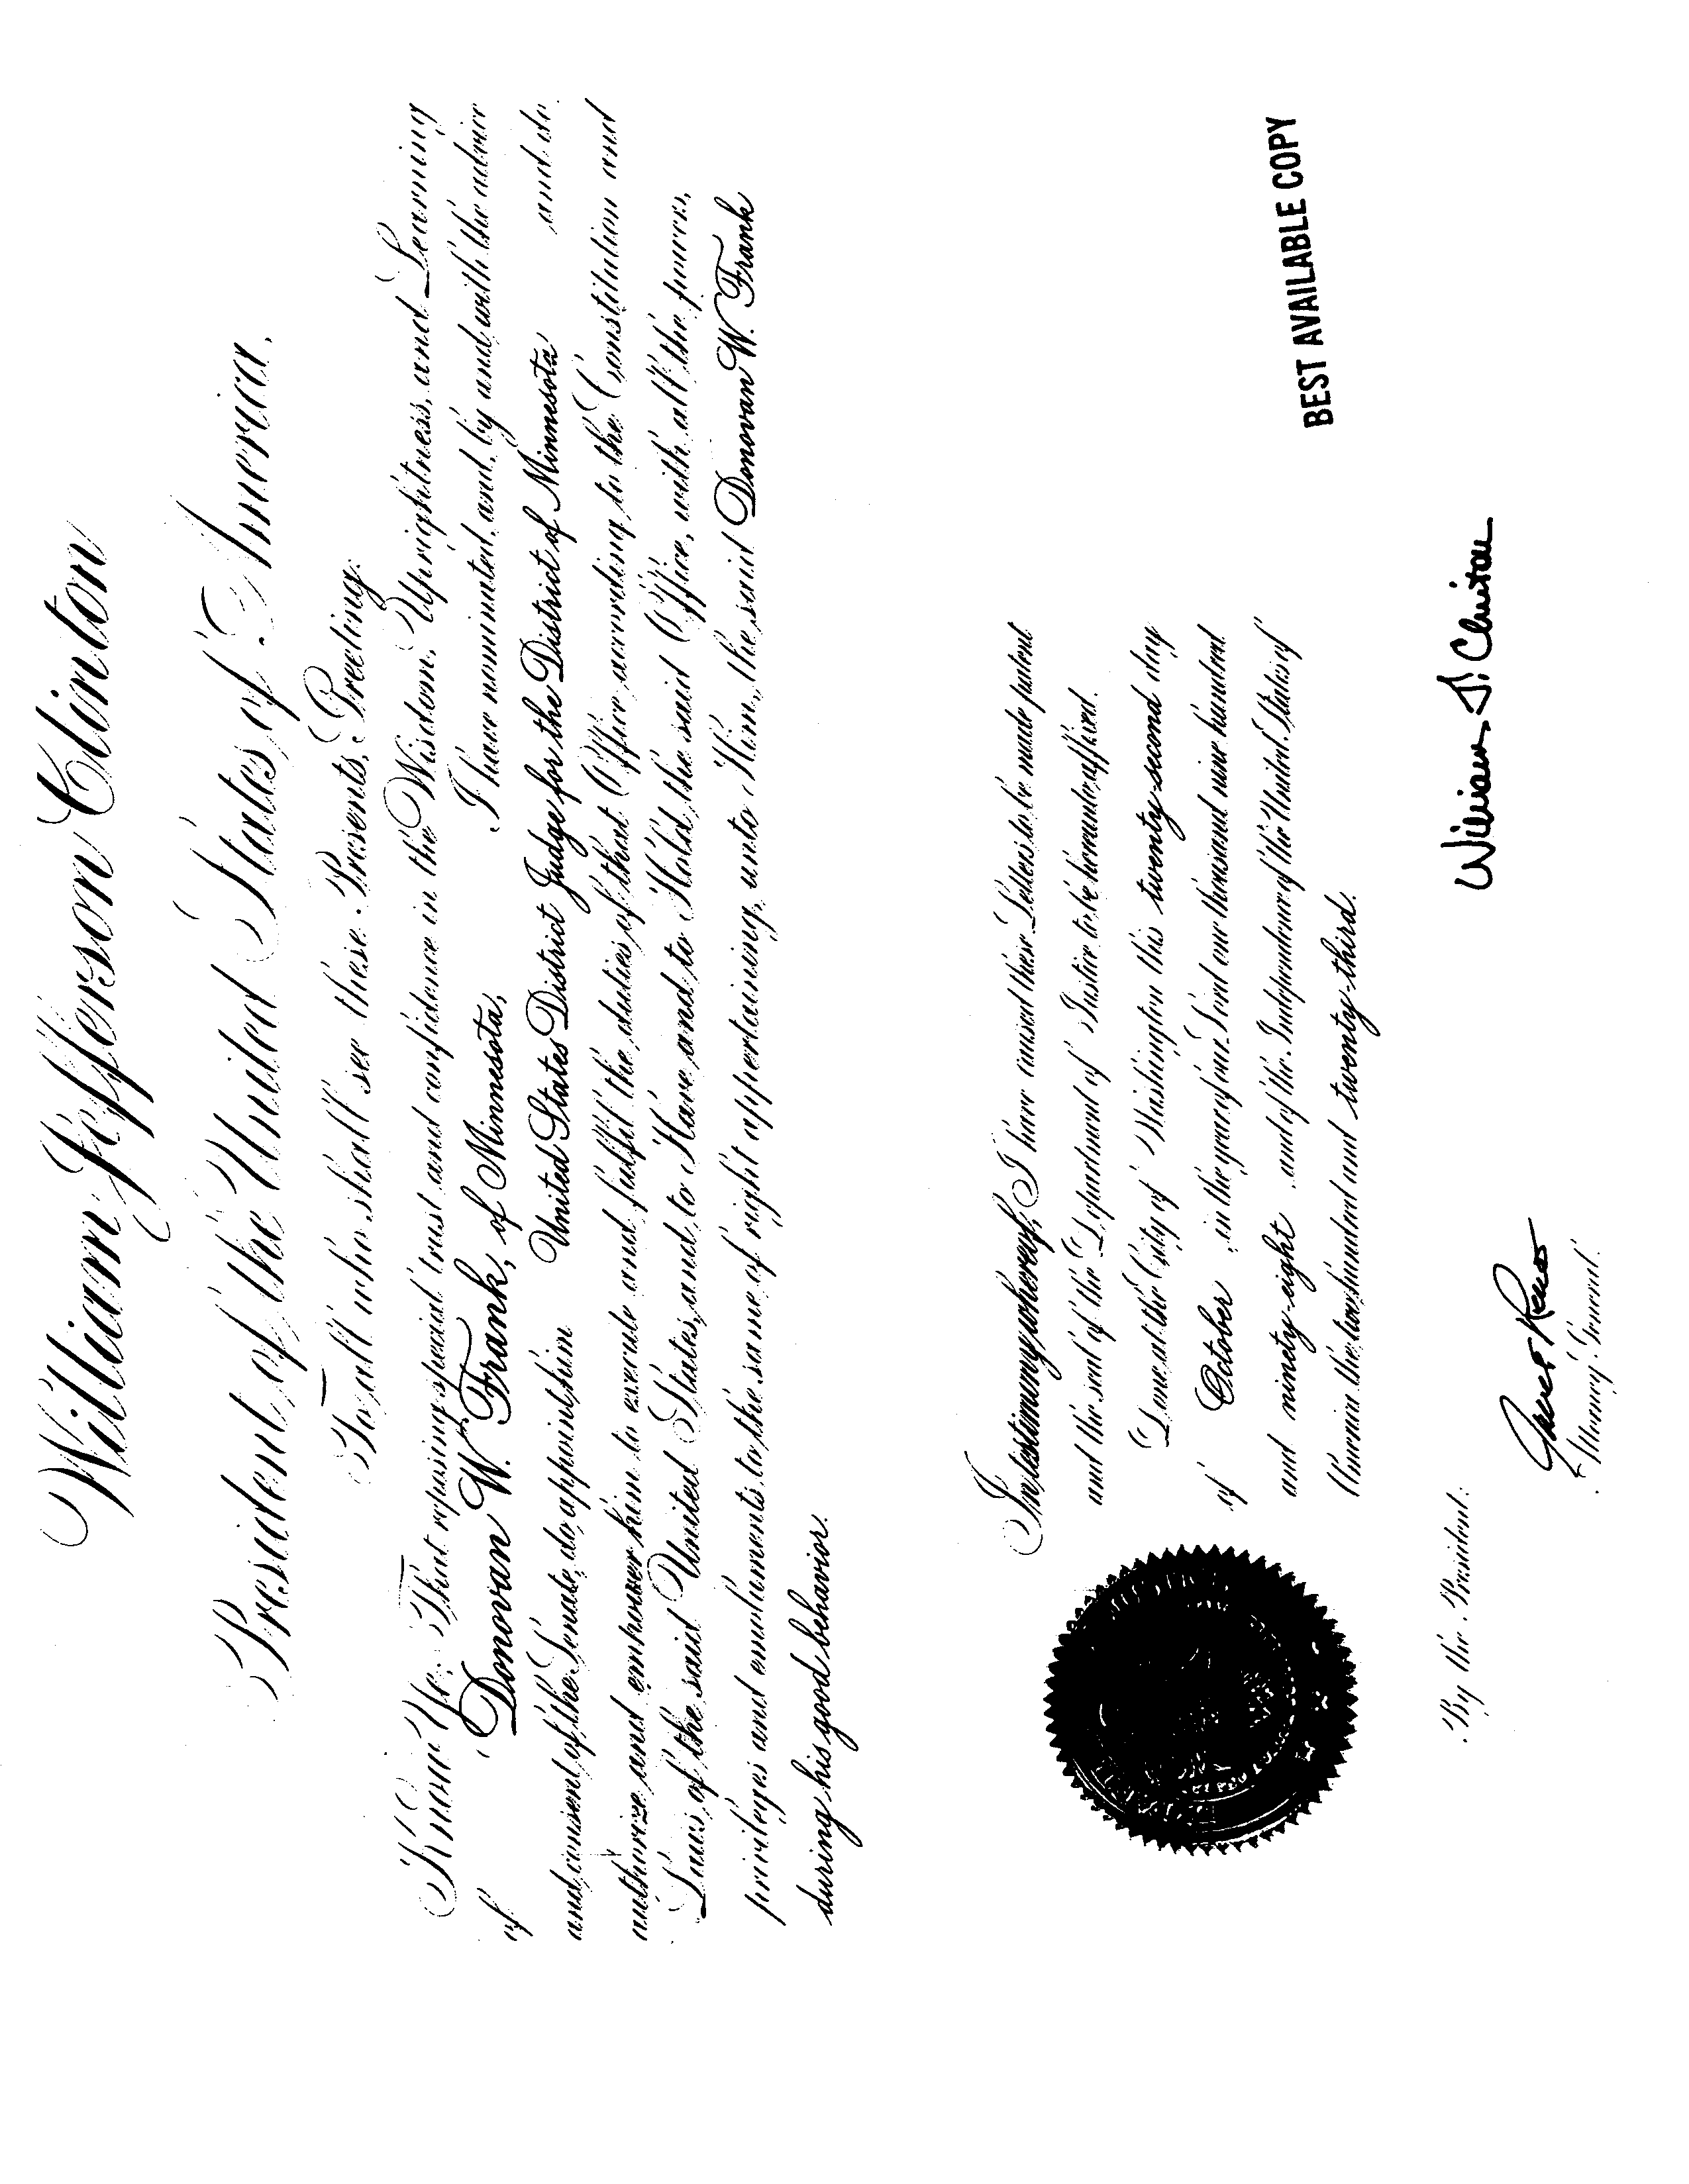 William Jefferson Clinton
President of the United States of America.
To all who shall see these Presents, Greeting:
Know Ye; That reposing special trust and confidence in the Wisdom, Uprightness, and Learning
of Donovan W. Frank, of Minnesota, I have nominated, and, by and with the advice
and consent of the Senate, do appoint him United States District Judge for the District of Minnesota and do
authorize and empower him to execute and fulfil the duties of that Office according to the Constitution and
Laws of the said United States, and to Have and to Hold the said Office, with all the powers,
privileges and emoluments to the same of right appertaining, unto Him, the said Donovan W. Frank
during his good behavior.
In testimony whereof, I have caused these Letters to be made patent
and the seal of the Department of Justice to be hereunto affixed.
Done at the City of Washington this twenty-second day
of October in the year of our Lord one thousand nine hundred
and ninety-eight and of the Independence of the United States of
America the two hundred and twenty-third.
BEST AVAILABLE COPY
William J. Clinton
By the President:
Janet Reno
Attorney General.